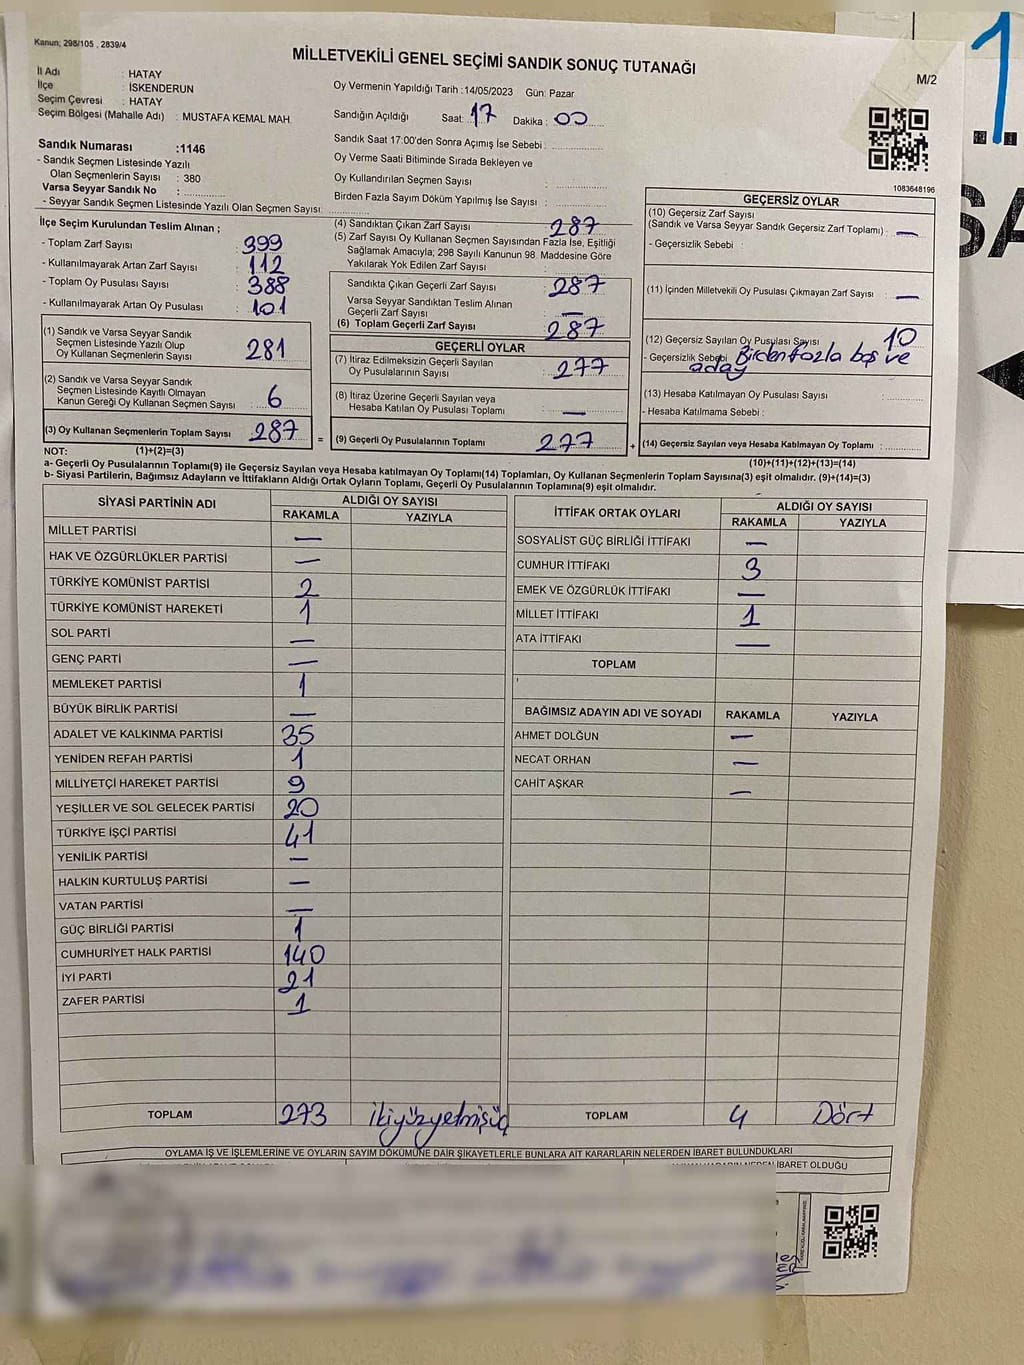 Kanun; 298/105 , 2839/4
MİLLETVEKİLİ GENEL SEÇİMİ SANDIK SONUÇ TUTANAĞI
M/2
İl Adı : HATAY
İlçe : İSKENDERUN
Seçim Çevresi : HATAY
Seçim Bölgesi (Mahalle Adı) : MUSTAFA KEMAL MAH.
Oy Vermenin Yapıldığı Tarih :14/05/2023 Gün: Pazar
Sandığın Açıldığı Saat: 17 Dakika : 00
Sandık Saat 17:00'den Sonra Açımış İse Sebebi :
Oy Verme Saati Bitiminde Sırada Bekleyen ve
Oy Kullandırılan Seçmen Sayısı :
Birden Fazla Sayım Döküm Yapılmış İse Sayısı :
Sandık Numarası :1146
- Sandık Seçmen Listesinde Yazılı
Olan Seçmenlerin Sayısı : 380
Varsa Seyyar Sandık No :
- Seyyar Sandık Seçmen Listesinde Yazılı Olan Seçmen Sayısı:
1083648196
İlçe Seçim Kurulundan Teslim Alınan ;
- Toplam Zarf Sayısı : 399
- Kullanılmayarak Artan Zarf Sayısı : 112
- Toplam Oy Pusulası Sayısı : 388
- Kullanılmayarak Artan Oy Pusulası : 101
(1) Sandık ve Varsa Seyyar Sandık
Seçmen Listesinde Yazılı Olup
Oy Kullanan Seçmenlerin Sayısı : 281
(2) Sandık ve Varsa Seyyar Sandık
Seçmen Listesinde Kayıtlı Olmayan
Kanun Gereği Oy Kullanan Seçmen Sayısı : 6
(3) Oy Kullanan Seçmenlerin Toplam Sayısı : 287 =
(4) Sandıktan Çıkan Zarf Sayısı : 287
(5) Zarf Sayısı Oy Kullanan Seçmen Sayısından Fazla İse, Eşitliği
Sağlamak Amacıyla, 298 Sayılı Kanunun 98. Maddesine Göre
Yakılarak Yok Edilen Zarf Sayısı :
Sandıkta Çıkan Geçerli Zarf Sayısı : 287
Varsa Seyyar Sandıktan Teslim Alınan
Geçerli Zarf Sayısı : —
(6) Toplam Geçerli Zarf Sayısı : 287
GEÇERLİ OYLAR
(7) İtiraz Edilmeksizin Geçerli Sayılan
Oy Pusulalarının Sayısı : 277
(8) İtiraz Üzerine Geçerli Sayılan veya
Hesaba Katılan Oy Pusulası Toplamı : —
(9) Geçerli Oy Pusulalarının Toplamı : 277 +
GEÇERSİZ OYLAR
(10) Geçersiz Zarf Sayısı
(Sandık ve Varsa Seyyar Sandık Geçersiz Zarf Toplamı) : —
- Geçersizlik Sebebi :
(11) İçinden Milletvekili Oy Pusulası Çıkmayan Zarf Sayısı : —
(12) Geçersiz Sayılan Oy Pusulası Sayısı : 10
- Geçersizlik Sebebi Birden fazla boş ve
aday
(13) Hesaba Katılmayan Oy Pusulası Sayısı :
- Hesaba Katılmama Sebebi :
(14) Geçersiz Sayılan veya Hesaba Katılmayan Oy Toplamı :
NOT: (1)+(2)=(3)
(10)+(11)+(12)+(13)=(14)
a- Geçerli Oy Pusulalarının Toplamı(9) ile Geçersiz Sayılan veya Hesaba katılmayan Oy Toplamı(14) Toplamları, Oy Kullanan Seçmenlerin Toplam Sayısına(3) eşit olmalıdır. (9)+(14)=(3)
b- Siyasi Partilerin, Bağımsız Adayların ve İttifakların Aldığı Ortak Oyların Toplamı, Geçerli Oy Pusulalarının Toplamına(9) eşit olmalıdır.
SİYASİ PARTİNİN ADI ALDIĞI OY SAYISI
RAKAMLA YAZIYLA
MİLLET PARTİSİ —
HAK VE ÖZGÜRLÜKLER PARTİSİ —
TÜRKİYE KOMÜNİST PARTİSİ 2
TÜRKİYE KOMÜNİST HAREKETİ 1
SOL PARTİ —
GENÇ PARTİ —
MEMLEKET PARTİSİ 1
BÜYÜK BİRLİK PARTİSİ —
ADALET VE KALKINMA PARTİSİ 35
YENİDEN REFAH PARTİSİ 1
MİLLİYETÇİ HAREKET PARTİSİ 9
YEŞİLLER VE SOL GELECEK PARTİSİ 20
TÜRKİYE İŞÇİ PARTİSİ 41
YENİLİK PARTİSİ —
HALKIN KURTULUŞ PARTİSİ —
VATAN PARTİSİ —
GÜÇ BİRLİĞİ PARTİSİ 1
CUMHURİYET HALK PARTİSİ 140
İYİ PARTİ 21
ZAFER PARTİSİ 1
TOPLAM 273 ikiyüzyetmişüç
İTTİFAK ORTAK OYLARI ALDIĞI OY SAYISI
RAKAMLA YAZIYLA
SOSYALİST GÜÇ BİRLİĞİ İTTİFAKI —
CUMHUR İTTİFAKI 3
EMEK VE ÖZGÜRLÜK İTTİFAKI —
MİLLET İTTİFAKI 1
ATA İTTİFAKI —
TOPLAM
BAĞIMSIZ ADAYIN ADI VE SOYADI RAKAMLA YAZIYLA
AHMET DOLĞUN —
NECAT ORHAN —
CAHİT AŞKAR —
TOPLAM 4 Dört
OYLAMA İŞ VE İŞLEMLERİNE VE OYLARIN SAYIM DÖKÜMÜNE DAİR ŞİKAYETLERLE BUNLARA AİT KARARLARIN NELERDEN İBARET BULUNDUKLARI
İBARET OLDUĞU
1
SA